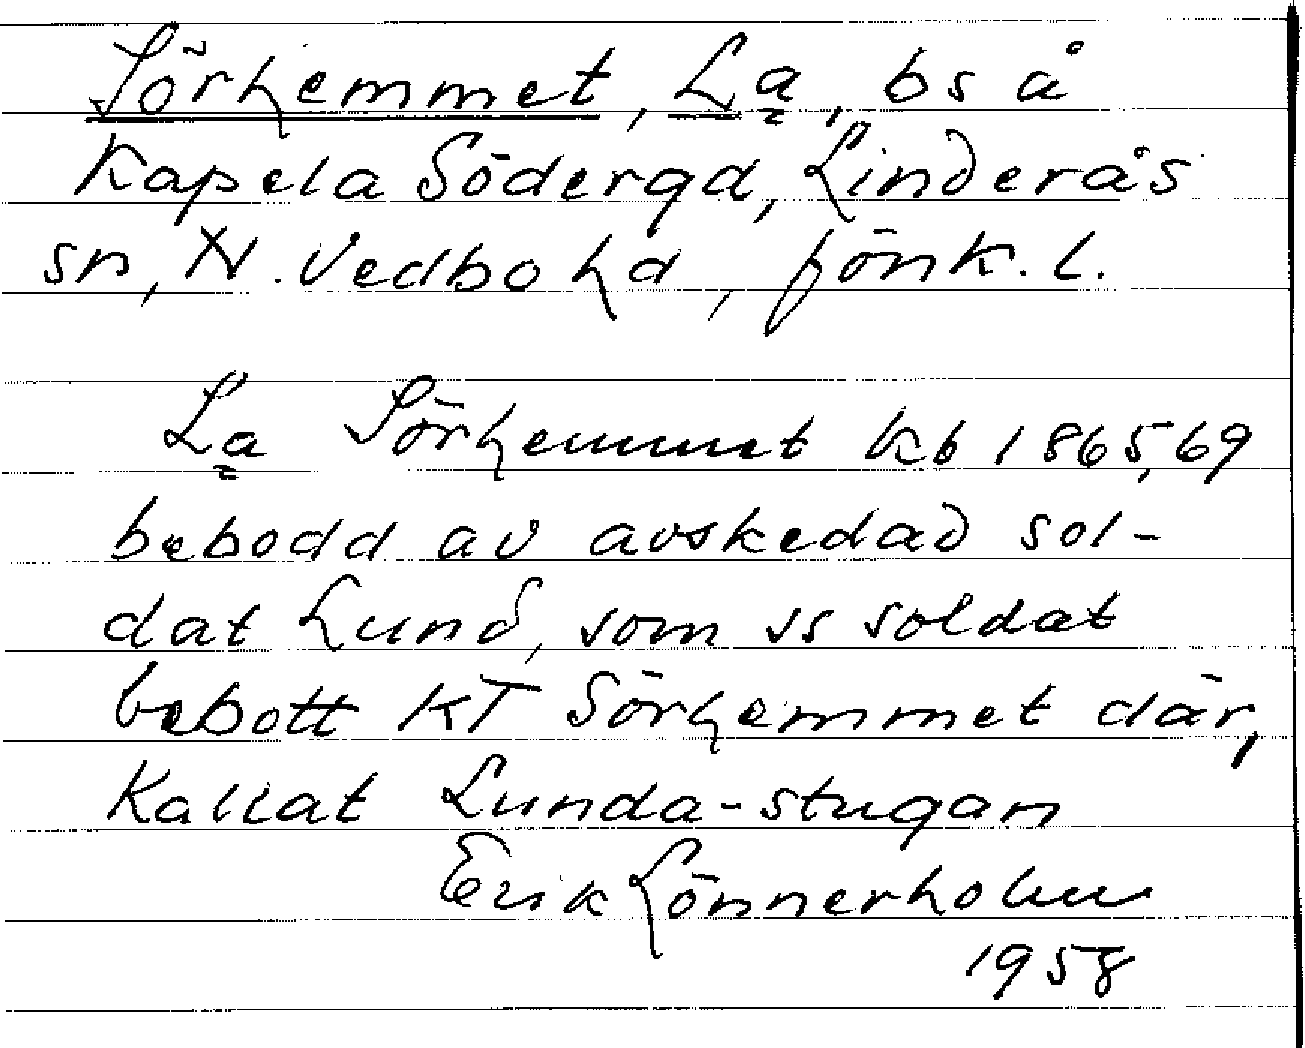 Sörhemmet, La, bs å
Kapela Södergd, Linderås
sn, N. Vedbo hd, Jönk. l.
La Sörhemmet kb 1865, 69
bebodd av avskedad sol-
dat Lund, som ss soldat
bebott KT Sörhemmet där,
Kallat Lunda-stugan
Erik Lönnerholm
1958